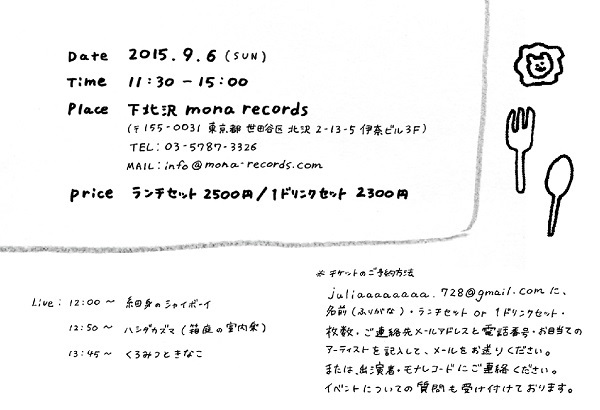 Date 2015.9.6 (SUN)
Time 11:30 − 15:00
Place 下北沢 mona records
(〒155-0031 東京都 世田谷区 北沢 2-13-5 伊奈ビル3F)
TEL: 03-5787-3326
MAIL: info@mona-records.com
price ランチセット 2500円 / 1ドリンクセット 2300円
Live: 12:00 〜 細身のシャイボーイ
12:50 〜 ハシダカズマ (箱庭の室内楽)
13:45 〜 くるみつときなこ
※チケットのご予約方法
juliaaaaaaaa.728@gmail.com に、
名前(ふりがな)・ランチセット or 1ドリンクセット・
枚数・ご連絡先メールアドレスと電話番号・お目当ての
アーティストを記入して、メールをお送りください。
または、出演者・モナレコードにご連絡ください。
イベントについての質問も受け付けております。